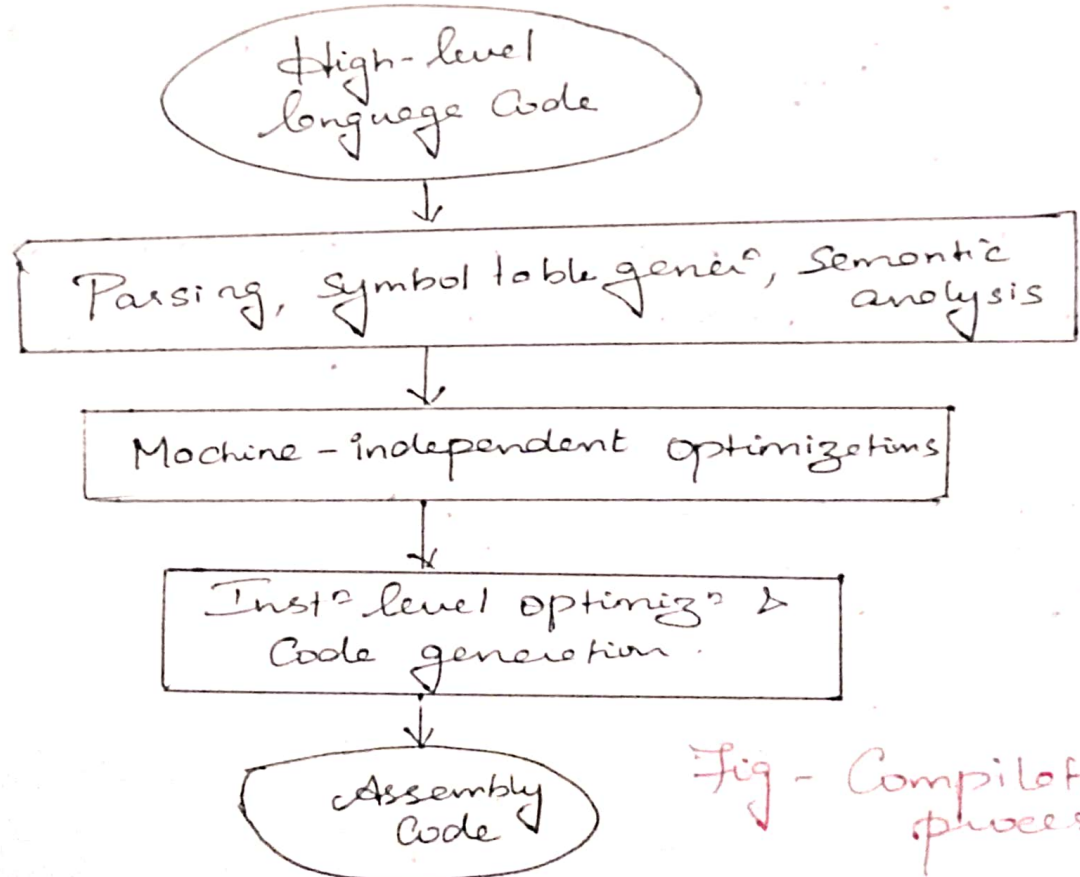 High-level
language Code
Parsing, symbol table genérⁿ, semantic
analysis
Machine-independent optimizations
Instⁿ level optimizⁿ &
Code generation.
Assembly
Code
Fig - Compilat
proces